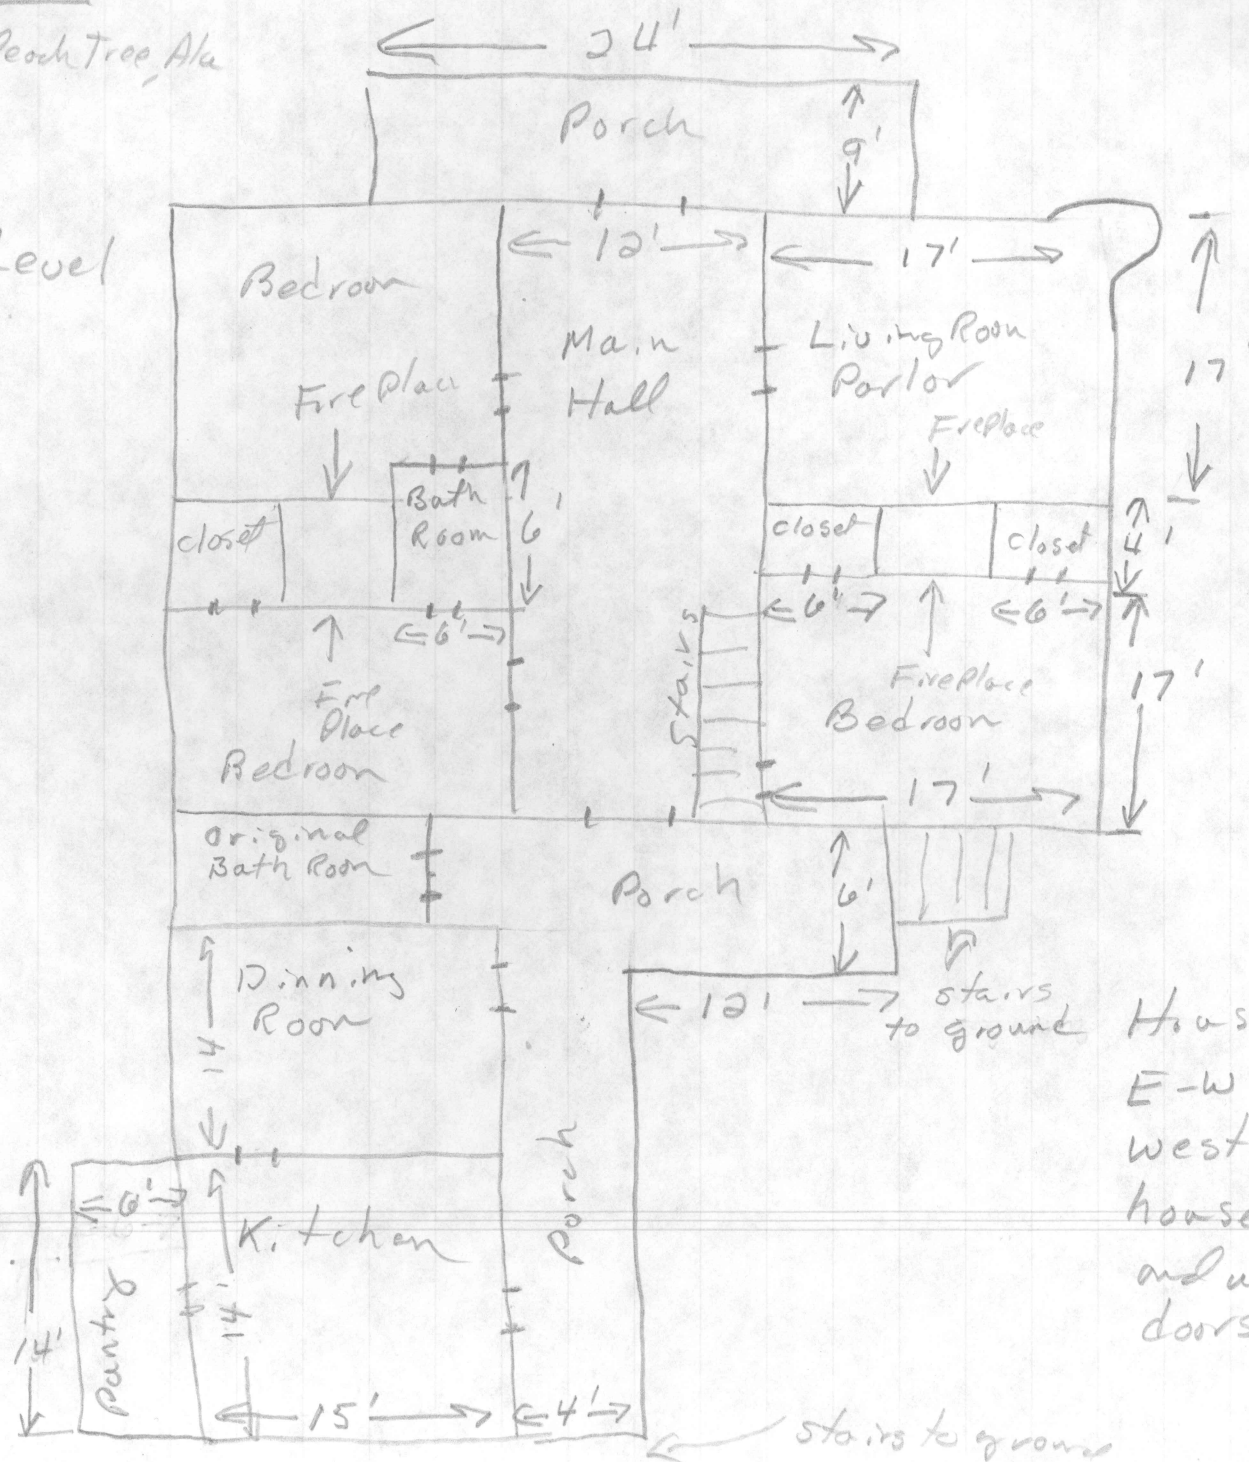 Peach Tree, Ala
24'
Porch
9'
Level
12'
17'
Bedroom
Main
Hall
Living Room
Parlor
17'
Fire Place
FirePlace
Bath
Room
6'
closet
closet
closet
4'
6'
6'
6'
Stairs
Fire
Place
FirePlace
17'
Bedroom
Bedroom
17'
Original
Bath Room
Porch
6'
Dinning
Room
14
12'
stairs
to ground
E-W
west
house
doors
Porch
6'
Kitchen
Pantry
14'
14'
15'
4'
stairs to ground